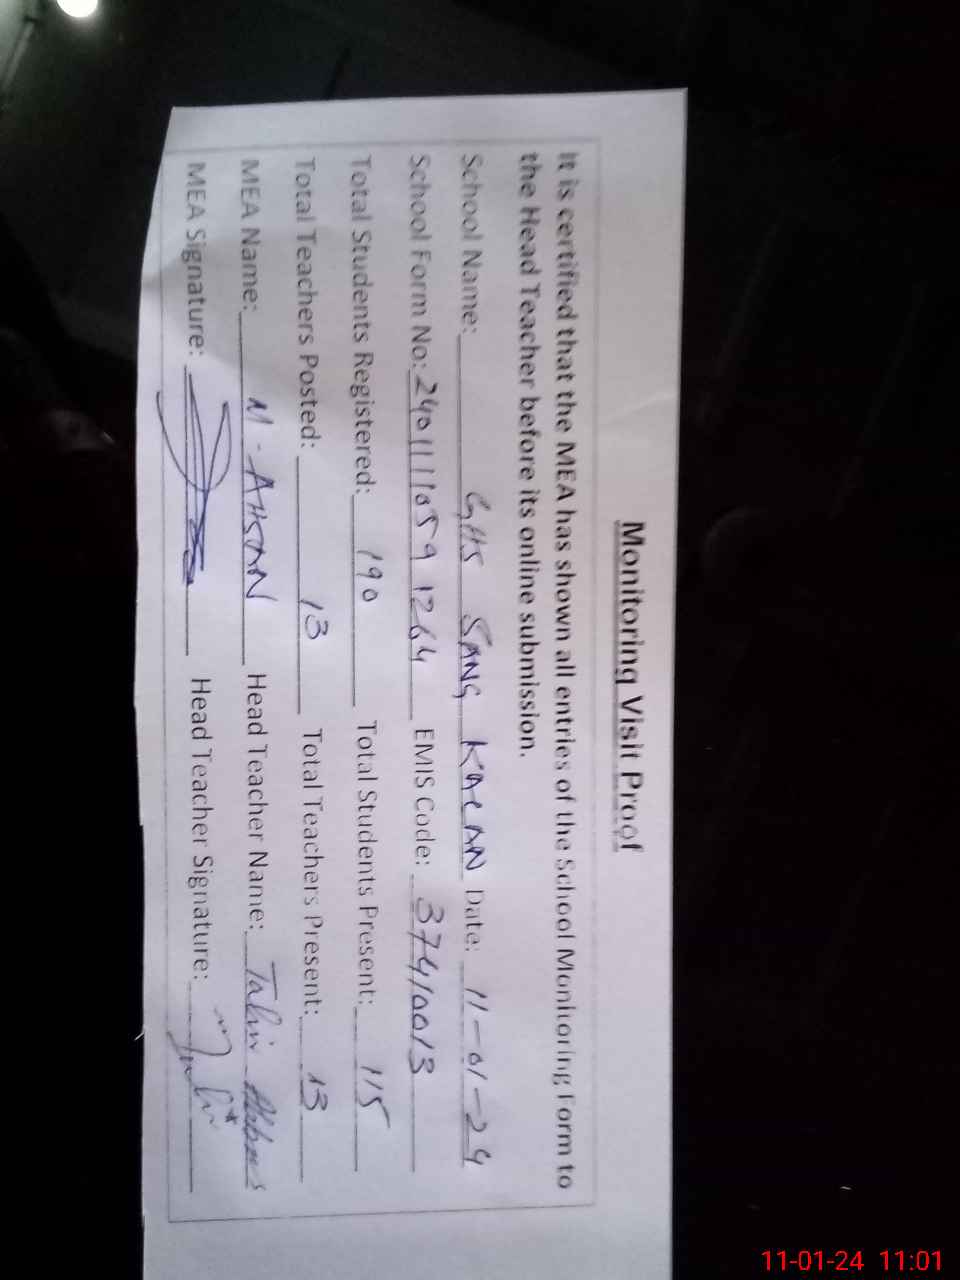 Monitoring Visit Proof
It is certified that the MEA has shown all entries of the School Monitoring Form to
the Head Teacher before its online submission.
School Name: GHS SANG KALAN Date: 11-01-24
School Form No: 24011110591264 EMIS Code: 37410013
Total Students Registered: 190 Total Students Present: 115
Total Teachers Posted: 13 Total Teachers Present: 13
MEA Name: M. AHSAN Head Teacher Name: Tahir Abbas
MEA Signature: Head Teacher Signature:
11-01-24 11:01